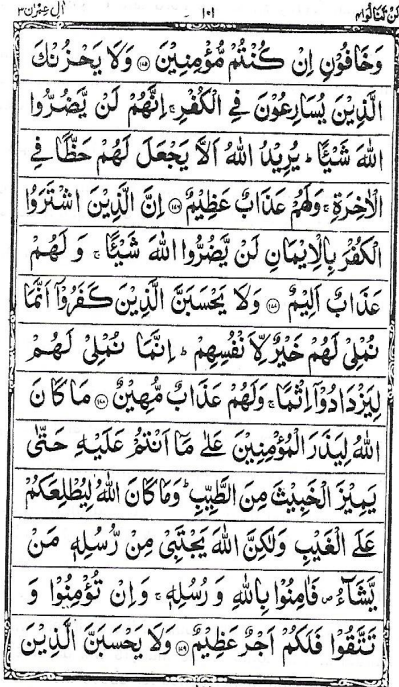 اٰل عمرٰن ٣ ١٠١ لن تنالوا ٤
وَخَافُوْنِ اِنْ كُنْتُمْ مُّؤْمِنِيْنَ ۝ وَلَا يَحْزُنْكَ
الَّذِيْنَ يُسَارِعُوْنَ فِي الْكُفْرِ ۚ اِنَّهُمْ لَنْ يَّضُرُّوا
اللّٰهَ شَيْـًٔا ؕ يُرِيْدُ اللّٰهُ اَلَّا يَجْعَلَ لَهُمْ حَظًّا فِي
الْاٰخِرَةِ ۚ وَلَهُمْ عَذَابٌ عَظِيْمٌ ۝ اِنَّ الَّذِيْنَ اشْتَرَوُا
الْكُفْرَ بِالْاِيْمَانِ لَنْ يَّضُرُّوا اللّٰهَ شَيْـًٔا ۚ وَلَهُمْ
عَذَابٌ اَلِيْمٌ ۝ وَلَا يَحْسَبَنَّ الَّذِيْنَ كَفَرُوْٓا اَنَّمَا
نُمْلِيْ لَهُمْ خَيْرٌ لِّاَنْفُسِهِمْ ؕ اِنَّمَا نُمْلِيْ لَهُمْ
لِيَزْدَادُوْٓا اِثْمًا ۚ وَلَهُمْ عَذَابٌ مُّهِيْنٌ ۝ مَا كَانَ
اللّٰهُ لِيَذَرَ الْمُؤْمِنِيْنَ عَلٰى مَآ اَنْتُمْ عَلَيْهِ حَتّٰى
يَمِيْزَ الْخَبِيْثَ مِنَ الطَّيِّبِ ؕ وَمَا كَانَ اللّٰهُ لِيُطْلِعَكُمْ
عَلَى الْغَيْبِ وَلٰكِنَّ اللّٰهَ يَجْتَبِيْ مِنْ رُّسُلِهٖ مَنْ
يَّشَآءُ ۪ فَاٰمِنُوْا بِاللّٰهِ وَرُسُلِهٖ ۚ وَاِنْ تُؤْمِنُوْا وَ
تَتَّقُوْا فَلَكُمْ اَجْرٌ عَظِيْمٌ ۝ وَلَا يَحْسَبَنَّ الَّذِيْنَ